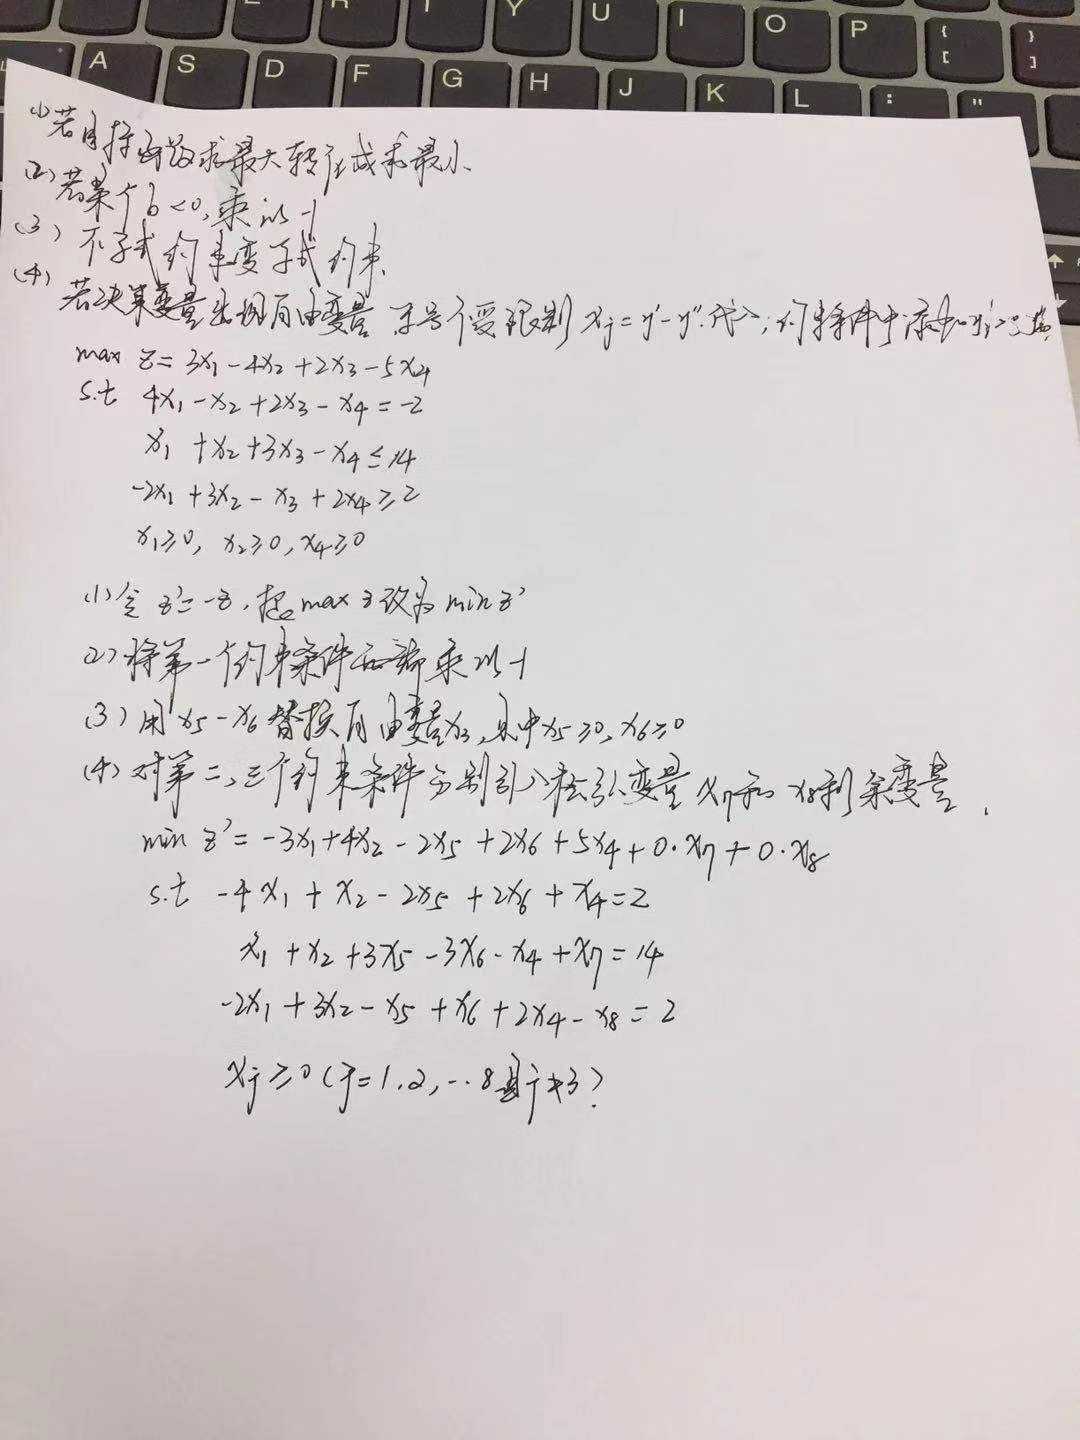 E R I Y U I O P { [ } ]
A S D F G H J K L : ; "
(1) 若目标函数求最大转法成求最小
(2) 若某个b<0,乘以-1
(3) 不等式约束变等式约束
(4) 若决策变量出现自由变量 符号不受限制 xj=y'-y''代入;约束条件中添加
max z=3x₁-4x₂+2x₃-5x₄
s.t 4x₁-x₂+2x₃-x₄=-2
x₁+x₂+3x₃-x₄≤14
-2x₁+3x₂-x₃+2x₄≥2
x₁≥0, x₂≥0, x₄≥0
(1) 令z'=-z,把max z改为min z'
(2) 将第一个约束条件两端乘以-1
(3) 用x₅-x₆替换自由变量x₃,其中x₅≥0,x₆≥0
(4) 对第二、三个约束条件分别引入松弛变量x₇和x₈剩余变量.
min z'=-3x₁+4x₂-2x₅+2x₆+5x₄+0·x₇+0·x₈
s.t -4x₁+x₂-2x₅+2x₆+x₄=2
x₁+x₂+3x₅-3x₆-x₄+x₇=14
-2x₁+3x₂-x₅+x₆+2x₄-x₈=2
xj≥0(j=1.2,…8且j≠3)